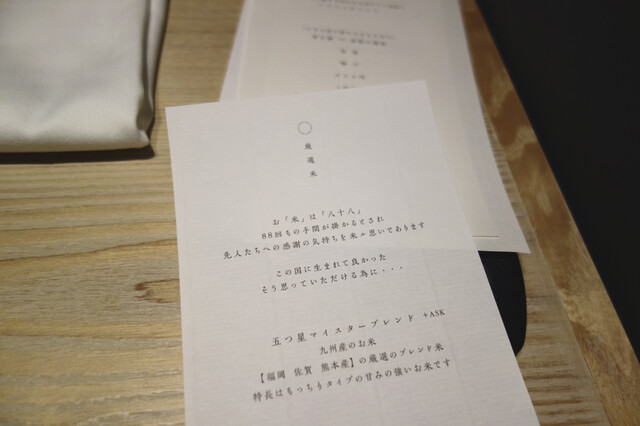 厳選米
お「米」は「八十八」
88回もの手間が掛かるとされ
先人たちへの感謝の気持ちを米ル思いであります
この国に生まれて良かった
そう思っていただける為に・・・
五つ星マイスターブレンド +ASK
九州産のお米
【福岡 佐賀 熊本産】の厳選のブレンド米
特長はもっちりタイプの甘みの強いお米です